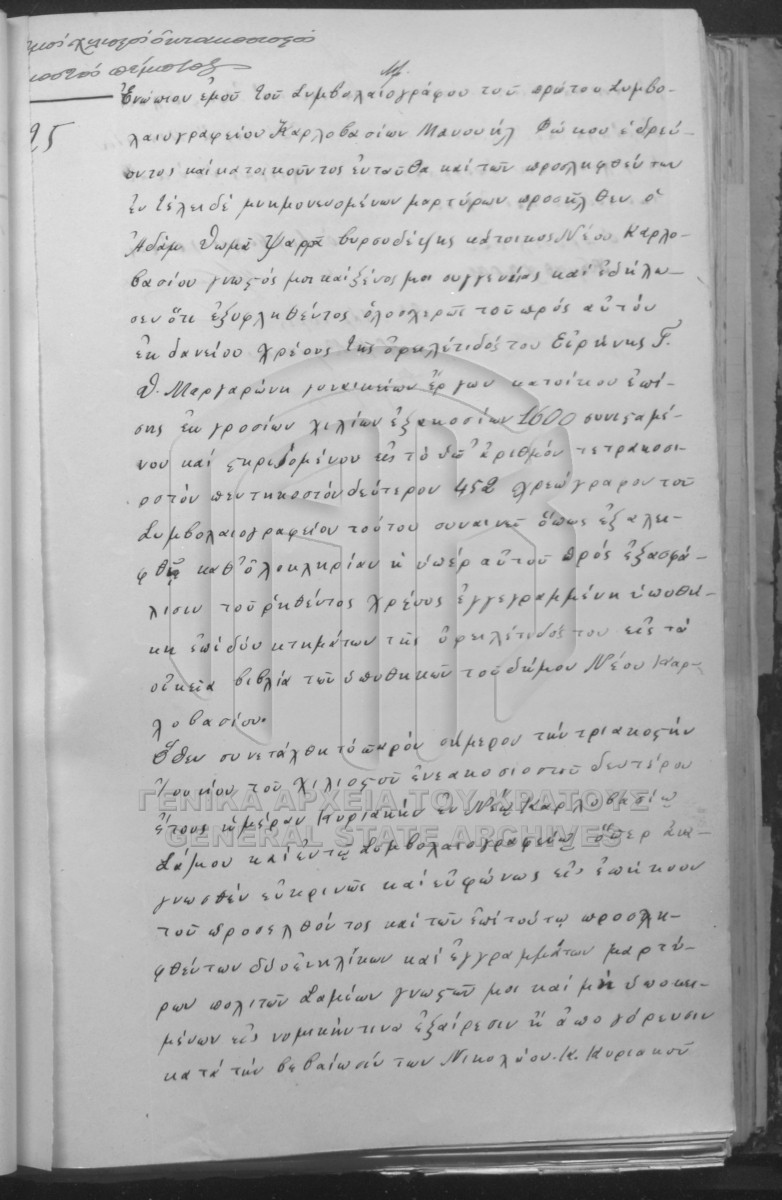 πέμπτος
25
Ἐνώπιον ἐμοῦ τοῦ Συμβολαιογράφου τοῦ πρώτου Συμβο-
λαιογραφείου Καρλοβασίων Μανουήλ Φώκου ἑδρεύ-
οντος καί κατοικοῦντος ἐνταῦθα καί τῶν προσληφθέντων
ἐν τέλει δέ μνημονευομένων μαρτύρων προσῆλθεν ὁ
Ἀδάμ Θωμᾶ Ψαρρᾶ βυρσοδέψης κάτοικος Νέου Καρλο-
βασίου γνωστός μοι καί ξένος μοι συγγενείας καί ἐδήλω-
σεν ὅτι ἐξοφληθέντος ὁλοσχερῶς τοῦ πρός αὐτόν
ἐκ δανείου χρέους τῆς ὀφειλέτιδός του Εἰρήνης Γ.
Θ. Μαργαρώνη γυναικείων ἔργων κατοίκου ἐπί-
σης ἐκ γροσίων χιλίων ἑξακοσίων 1600 συνισταμέ-
νου καί στηριζομένου εἰς τό ὑπ' ἀριθμόν τετρακοσι-
οστόν πεντηκοστόν δεύτερον 452 χρεώγραφον τοῦ
Συμβολαιογραφείου τούτου συναινεῖ ὅπως ἐξαλει-
φθῇ καθ' ὁλοκληρίαν ἡ ὑπέρ αὐτοῦ πρός ἐξασφά-
λισιν τοῦ ῥηθέντος χρέους ἐγγεγραμμένη ὑποθή-
κη ἐπί δύο κτημάτων τῆς ὀφειλέτιδός του εἰς τά
οἰκεῖα βιβλία τῶν ὑποθηκῶν τοῦ δήμου Νέου Καρ-
λοβασίου.
Ὅθεν συνετάχθη τό παρόν σήμερον τήν τριακοστήν
Ἰουνίου τοῦ χιλιοστοῦ ἐνεακοσιοστοῦ δευτέρου
ἔτους ἡμέραν Κυριακήν ἐν Νέῳ Καρλοβασίῳ
Σάμου καί ἐν τῷ Συμβολαιογραφείῳ ὅπερ ἀνα-
γνωσθέν εὐκρινῶς καί εὐφώνως εἰς ἐπήκοον
τοῦ προσελθόντος καί τῶν ἐπί τούτῳ προσλη-
φθέντων δύο ἐνηλίκων καί ἐγγραμμάτων μαρτύ-
ρων πολιτῶν Σαμίων γνωστῶν μοι καί μή ὑποκει-
μένων εἰς νομικήν τινα ἐξαίρεσιν ἤ ἀπαγόρευσιν
κατά τήν βεβαίωσίν των Νικολάου Κ. Κυριακοῦ
ΓΕΝΙΚΑ ΑΡΧΕΙΑ ΤΟΥ ΚΡΑΤΟΥΣ
GENERAL STATE ARCHIVES